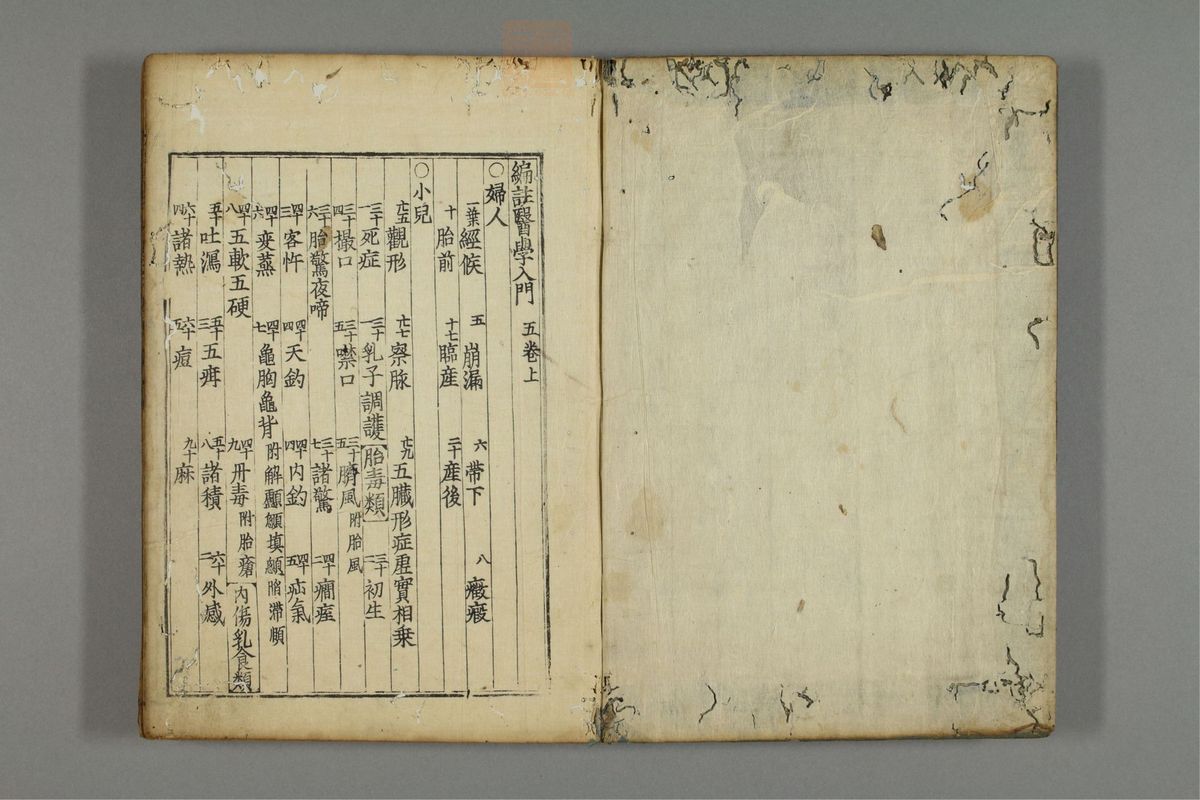 編註醫學入門 五卷上
○婦人
一葉經候 五崩漏 六帶下 八癥瘕
十胎前 十七臨産 二十産後
○小兒
廿五觀形 廿七察脉 廿九五臓形症虚實相乗
三十一死症 三十一乳子調護 【胎毒類】 三十一初生
三十四撮口 三十五噤口 三十五臍風附胎風
三十六胎驚夜啼 三十七諸驚 四十二癇痓
四十三客忤 四十四天釣 四十四内釣 四十五疝氣
四十六変蒸 四十七龜胸龜背 附解顱顖填顖陷滯頤
四十八五軟五硬 四十九丹毒附胎瘡 【内傷乳食類】
五十吐瀉 五十三五疳 五十八諸積 六十二外感
六十四諸熱 六十五痘 九十麻